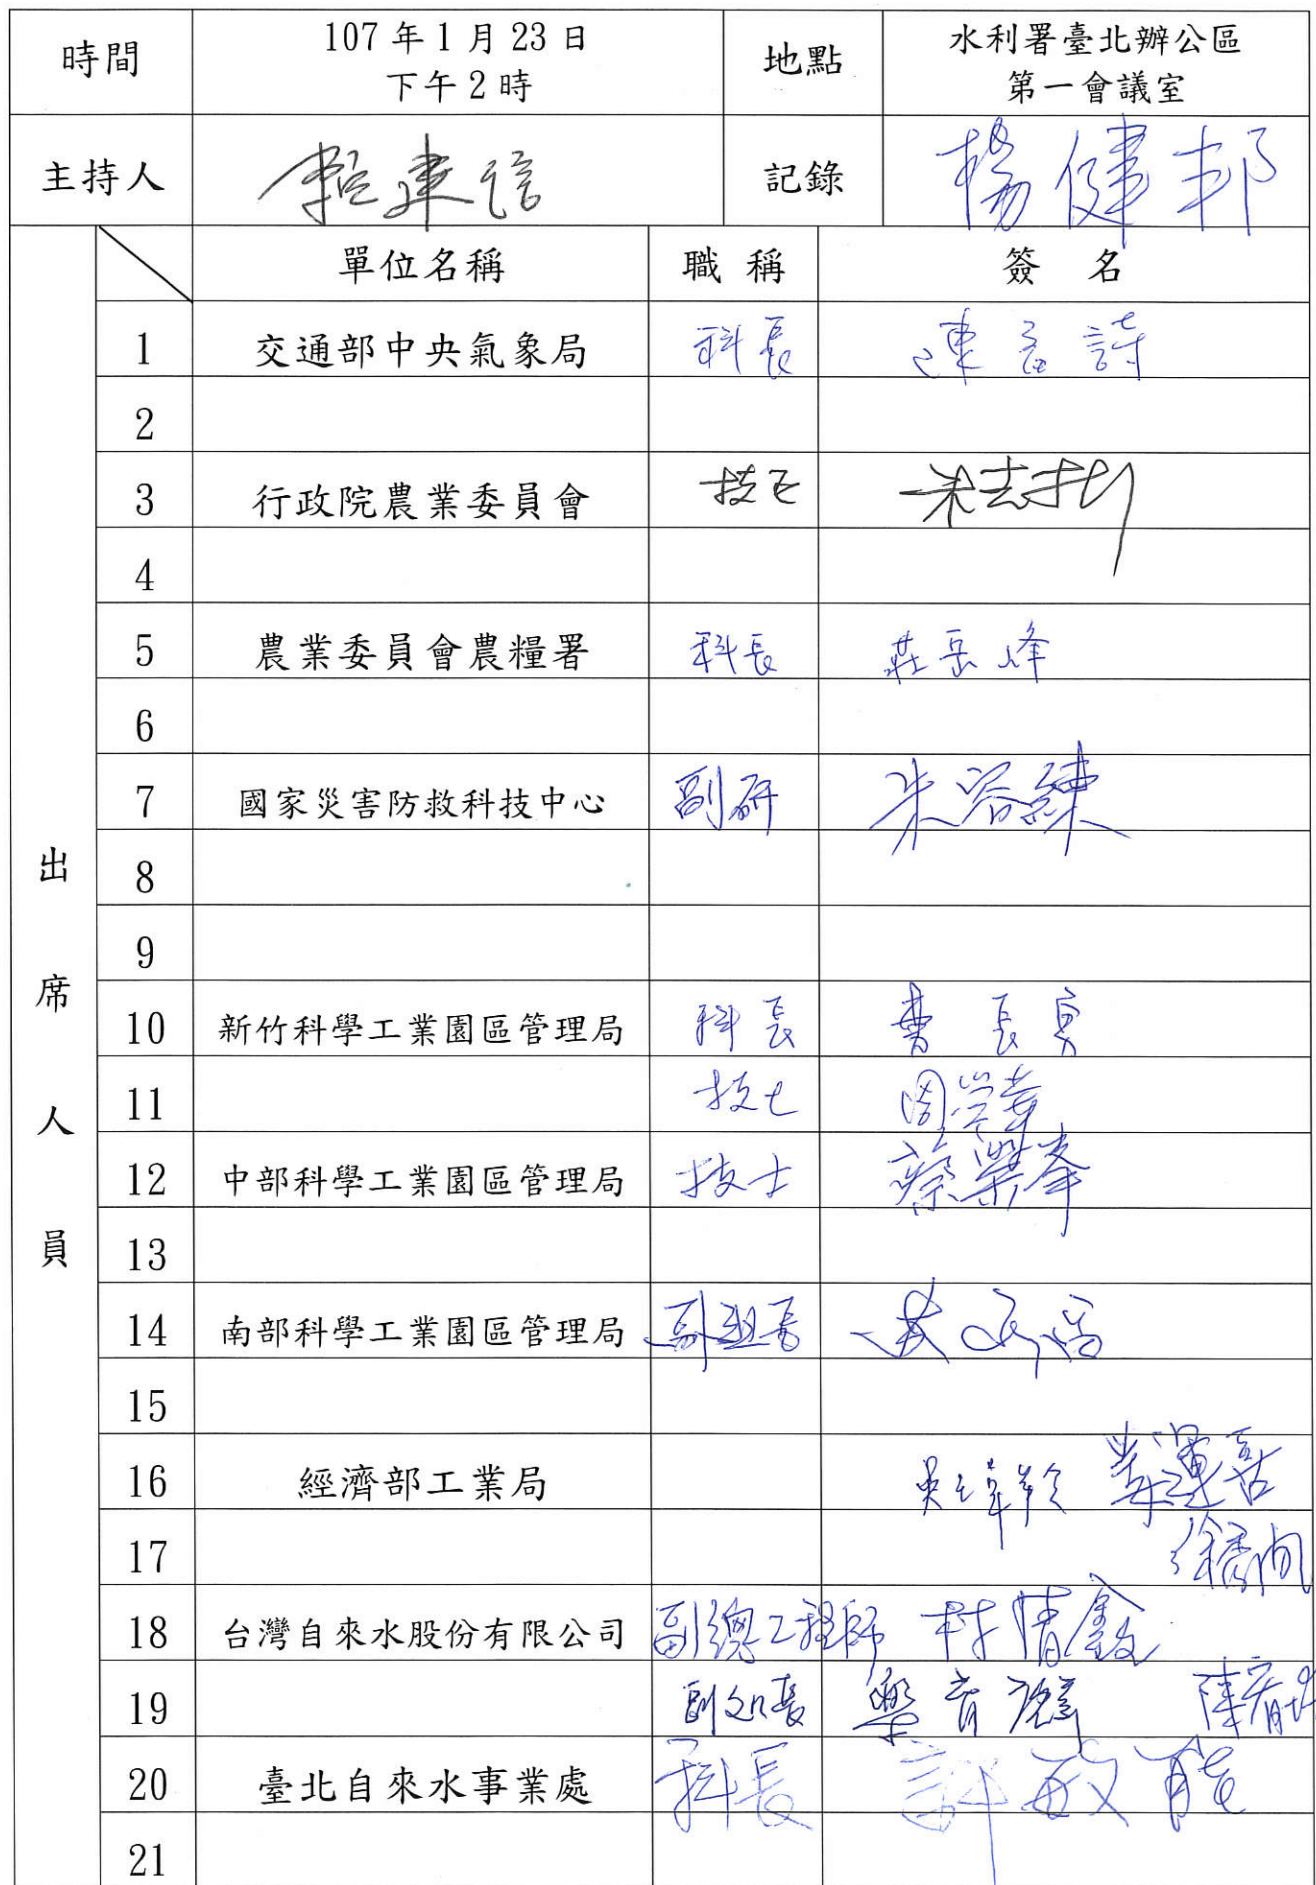 時間 107年1月23日 地點 水利署臺北辦公區
下午2時 第一會議室
主持人 賴建信 記錄 楊健邦
單位名稱 職稱 簽名
1 交通部中央氣象局 科長
2
3 行政院農業委員會 技正
4
5 農業委員會農糧署 科長 莊岳峰
6
7 國家災害防救科技中心 副研 朱容練
8
9
10 新竹科學工業園區管理局 科長
11 技士
12 中部科學工業園區管理局 技士 蔡樂峯
13
14 南部科學工業園區管理局 副組長
15
16 經濟部工業局
17
18 台灣自來水股份有限公司 副總工程師
19 副處長
20 臺北自來水事業處 科長 許敏能
21
出席人員